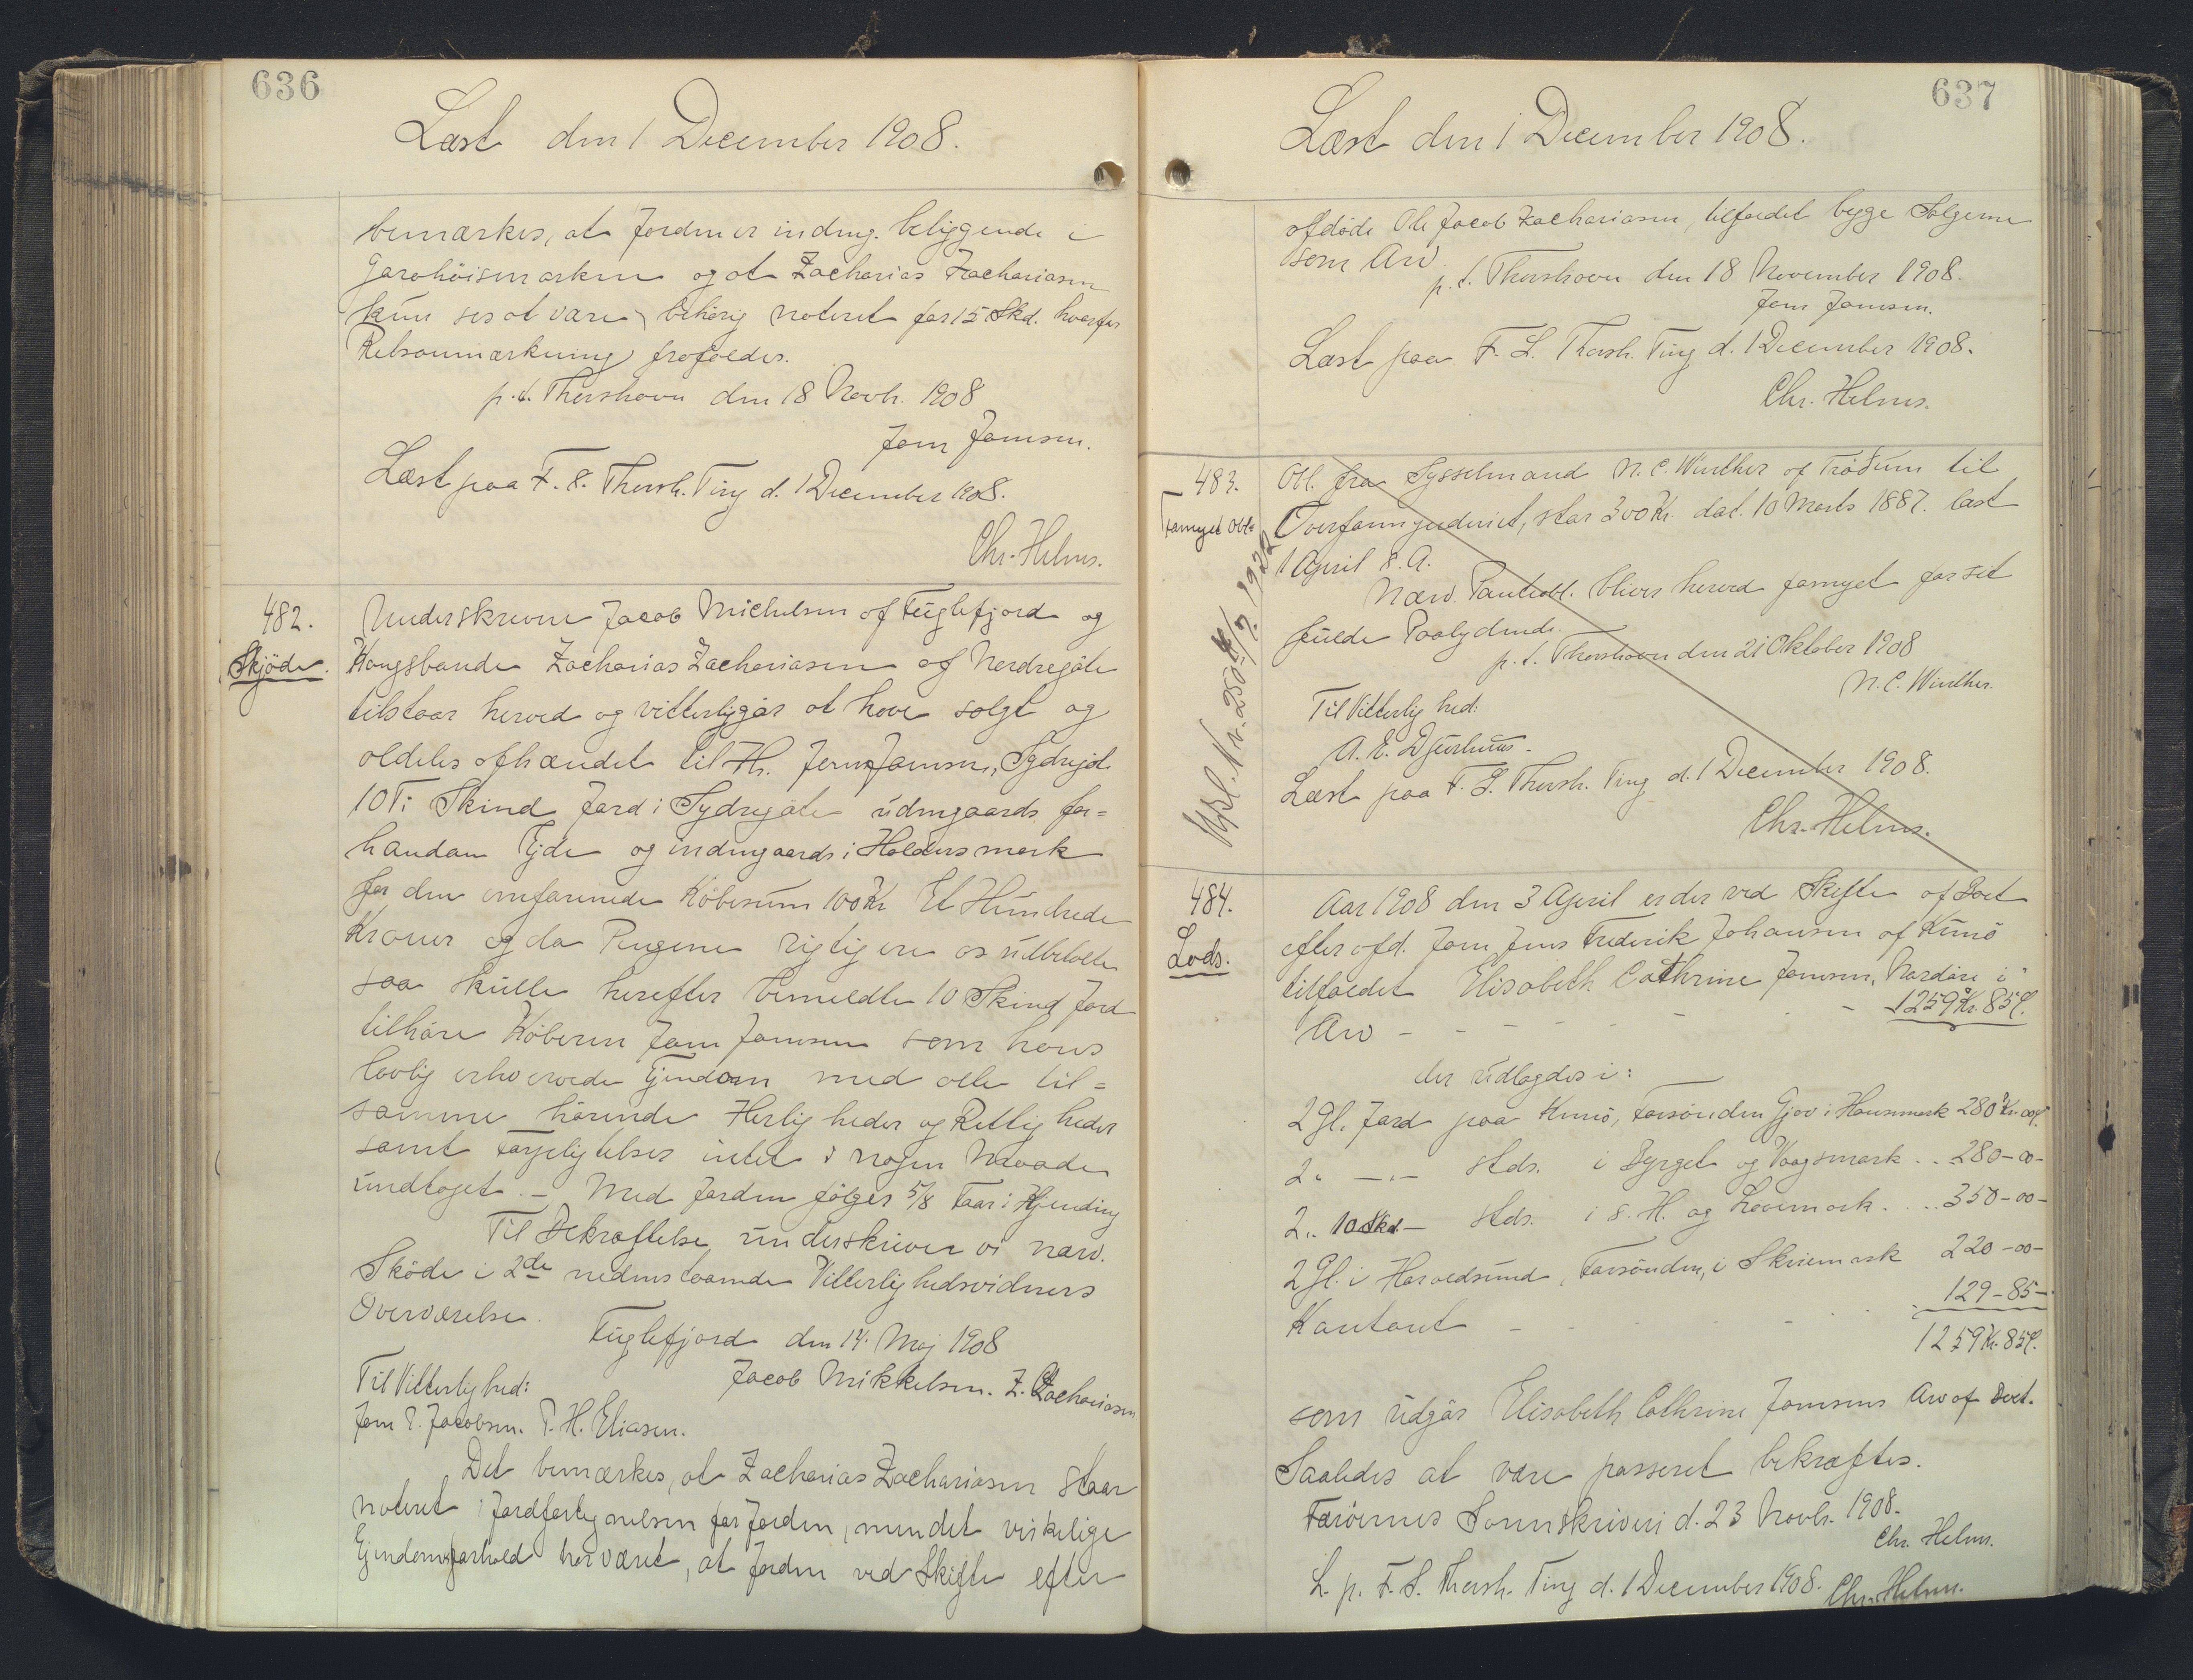 636
Læst den 1 December 1908.
bemærkes, at Jorden er indmg. beliggende i
Garshöismarken og at Zacharias Zachariasen
kun ses at være behörig noteret for 15 Skd. hvorfor
Retsanmærkning frafaldes.
p.t. Thorshavn den 18 Novb. 1908
Jom Jomsen.
Læst paa F. S. Thorsh. Ting d. 1 December 1908.
Chr. Helms.
482.
Skjöde.
Underskrevne Jacob Michelsen af Fuglefjord og
Kongsbonde Zacharias Zachariasen af Nordregöte
tilstaar herved og vitterliggör at have solgt og
aldeles afhændet til Hr. Jom Jomsen, Sydregöte
10 Ti Skind Jord i Sydregöte udengaards for-
handan Ejde og indengaards i Haldersmark
for den omforenede Köbesum 100 Kr Et Hundrede
Kroner og da Pengene rigtig ere os udbetalte
saa skulle herefter bemeldte 10 Skind Jord
tilhöre Köberen Jom Jomsen som hans
lovlig erhvervede Ejendom med alle til-
samme hörende Herligheder og Rettigheder
samt Forpligtelser intet i nogen Maade
undtaget. - Med Jorden fölger 5/8 Faar i Hjending
Til Bekræftelse underskriver vi nærv.
Sköde i 2de nedenstaaende Vitterlighedsvidners
Overværelse.
Fuglefjord den 14. Maj 1908
Til Vitterlighed:
Jacob Mikkelsen. Z. Zachariasen
Jom P. Jacobsen. P. H. Eliasen.
Det bemærkes, at Zacharias Zachariasen staar
noteret i Jordfortegnelsen for Jorden, men det virkelige
Ejendomsforhold har været, at Jorden ved Skifte efter
637
Læst den 1 December 1908.
afdöde Ole Jacob Zachariasen, tilfaldet begge Sælgerne
som Arv.
p.t. Thorshavn den 18 November 1908.
Jom Jomsen.
Læst paa F. S. Thorsh. Ting d. 1 December 1908.
Chr. Helms.
483.
Fornyet Obl.
Obl. fra Sysselmand N. C. Winther af Tröðum til
Overformynderiet, stor 300 Kr. dat. 10 Marts 1887. læst
1 April s. A.
Nærv. Panteobl. bliver herved fornyet for sit
fulde Paalydende.
p.t. Thorshavn den 21 Oktober 1908
N. C. Winther.
Til Vitterlighed:
A. E. Djurhuus.
Læst paa F. S. Thorsh. Ting d. 1 December 1908.
Chr. Helms.
484.
Lods.
Aar 1908 den 3 April er der ved Skifte af Boet
efter afd. Jom Jens Frederik Johansen af Kunö
tilfaldet Elisabeth Cathrine Jomsen, Nordöre i
Arv - - - - - - - 1259 Kr. 85 Ø.
der udlagdes i:
2 Gl. Jord paa Kunö, Forsönden Gjov i Hansmark 280 Kr. 00 Ø.
2 " -"- stds. i Byrget og Vaagsmark .. 280-00-
2 " 10 Skd - stds. i s. H. og Lavemark .... 350-00-
2 Gl. i Haraldsund, Forsönden, i Skriemark 220-00-
Kontant - - - 129-85-
1259 Kr. 85 Ø.
som udgör Elisabeth Cathrine Jomsens Arv af Boet.
Saaledes at være passeret bekræftes.
Færöernes Sorenskriveri d. 23 Novb. 1908.
Chr. Helms.
L. p. F. S. Thorsh. Ting d. 1 December 1908. Chr. Helms.